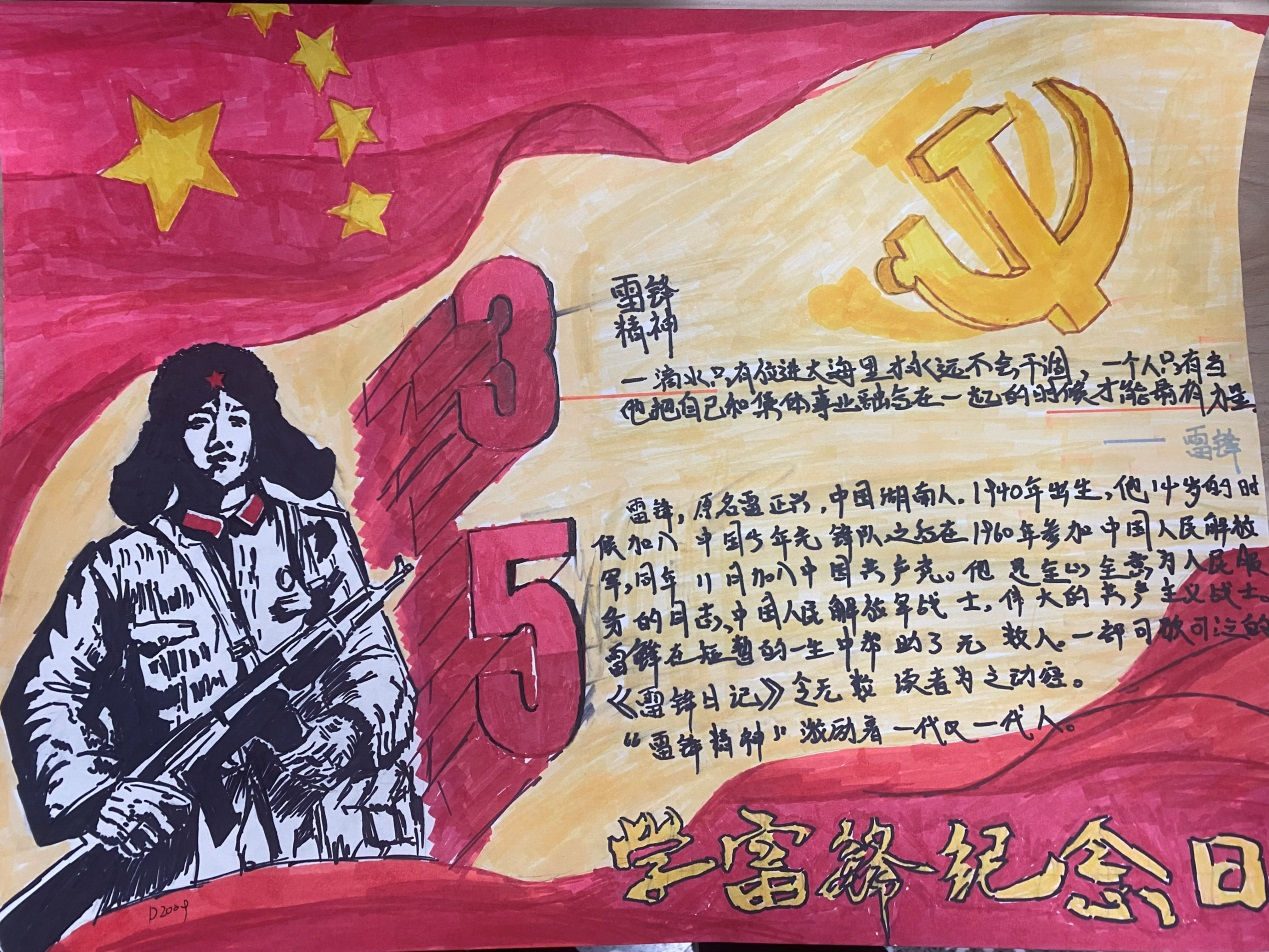 3
5
雷锋
精神
一滴水只有放进大海里才永远不会干涸，一个人只有当
他把自己和集体事业融合在一起的时候才能最有力量
——雷锋
雷锋，原名雷正兴，中国湖南人。1940年出生，他14岁的时
候加入中国少年先锋队之后在1960年参加中国人民解放
军，同年11月加入中国共产党。他是全心全意为人民服
务的同志，中国人民解放军战士，伟大的共产主义战士。
雷锋在短暂的一生中帮助了无数人。一部可歌可泣的
《雷锋日记》令无数读者为之动容。
“雷锋精神”激励着一代又一代人。
学雷锋纪念日
D2009